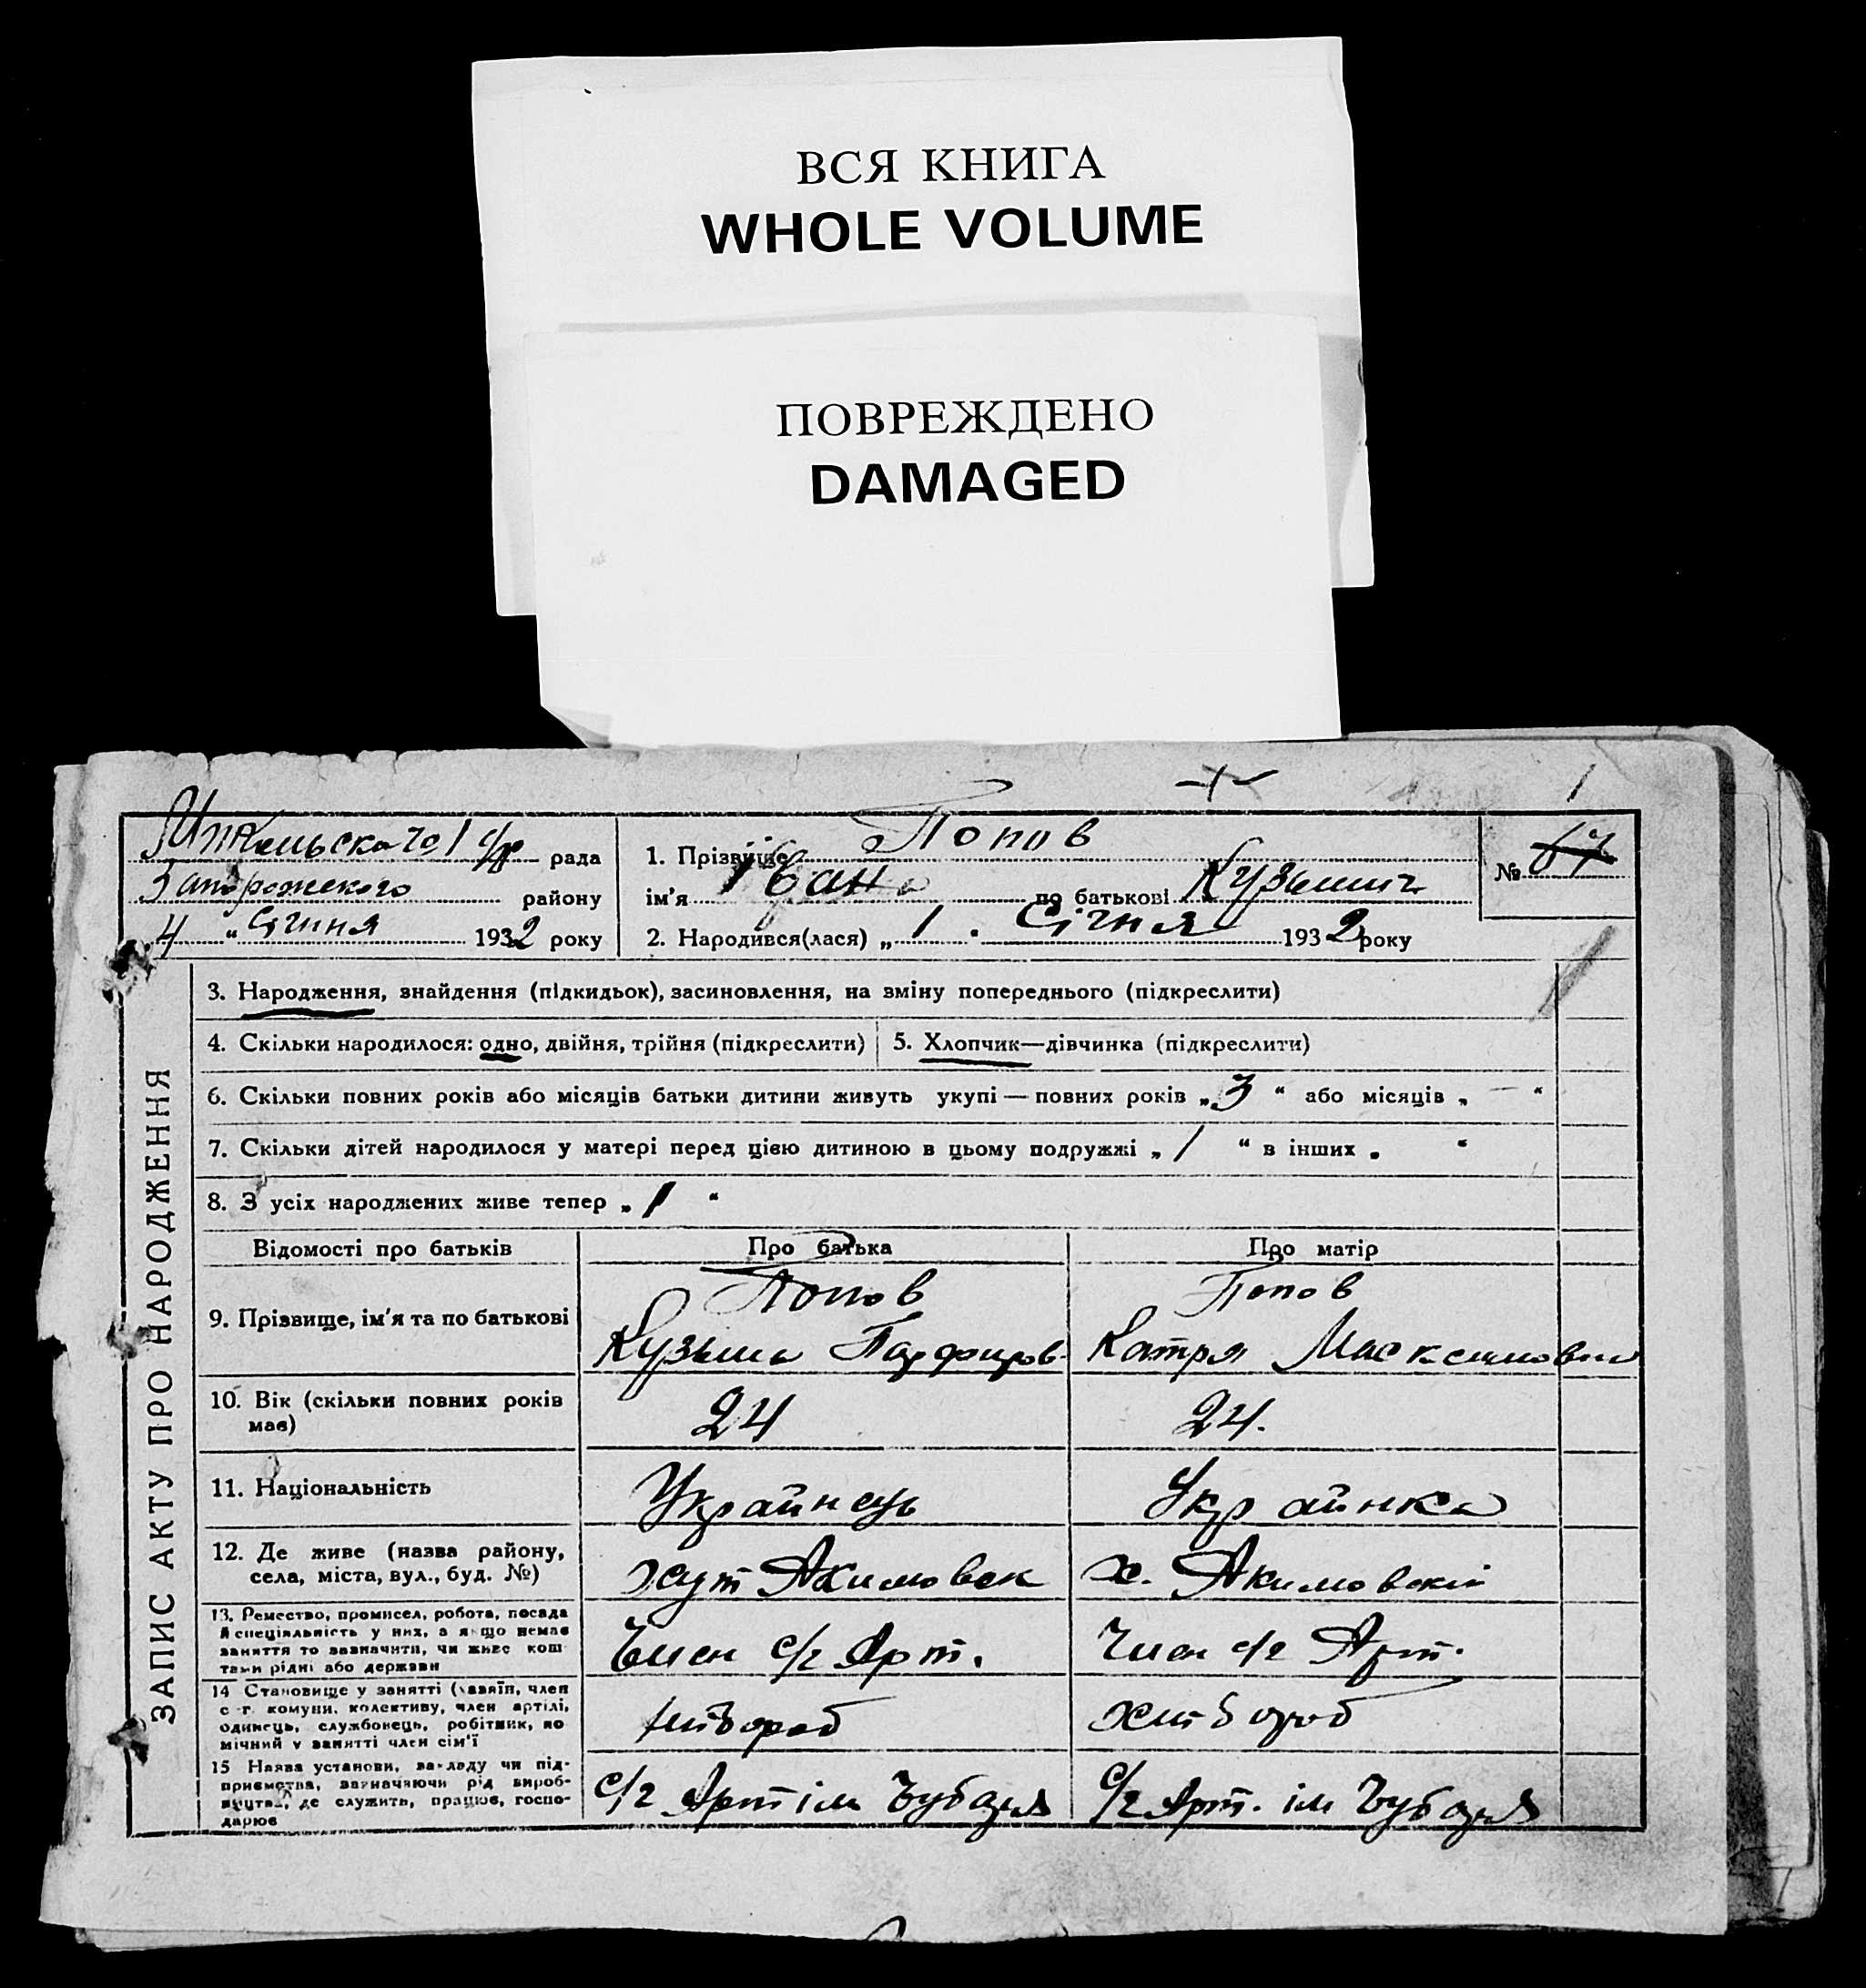 ВСЯ КНИГА
WHOLE VOLUME
ПОВРЕЖДЕНО
DAMAGED
1
рада
Запорожского району
4 " Січния 1932 року
1. Прізвище Попов
ім'я Іван по батькові Кузьмич
2. Народився(лася) „ 1 . Січня 1932 року
№ 67
ЗАПИС АКТУ ПРО НАРОДЖЕННЯ
3. Народження, знайдення (підкидьок), засиновлення, на зміну попереднього (підкреслити)
4. Скільки народилося: одно, двійня, трійня (підкреслити) 5. Хлопчик—дівчинка (підкреслити)
6. Скільки повних років або місяців батьки дитини живуть укупі — повних років „ 3 “ або місяців „ — “
7. Скільки дітей народилося у матері перед цією дитиною в цьому подружжі „ 1 “ в інших „ “
8. З усіх народжених живе тепер „ 1 “
Відомості про батьків Про батька Про матір
9. Прізвище, ім'я та по батькові
Попов Попов
Кузьма Парфиров Катря
10. Вік (скільки повних років має) 24 24.
11. Національність Украинець Украинка
12. Де живе (назва району,
села, міста, вул., буд. №) хут Акимовск х. Акимовский
13. Ремество, промисел, робота, посада
й спеціяльність у них, а якщо немає
заняття то зазначити, чи живе кош
тами рідні або держави
Член с/г Арт. Член с/г Арт.
14 Становище у занятті (хазяїн, член
с-г. комуни, колективу, член артілі,
одинець, службовець, робітник, по
мічний у занятті член сім'ї
хлібороб
15 Назва установи, закладу чи під-
приємства, зазначаючи рід вироб-
ництва, де служить, працює, госпо-
дарює
с/г Арт ім Чубаря с/г Арт. ім Чубаря